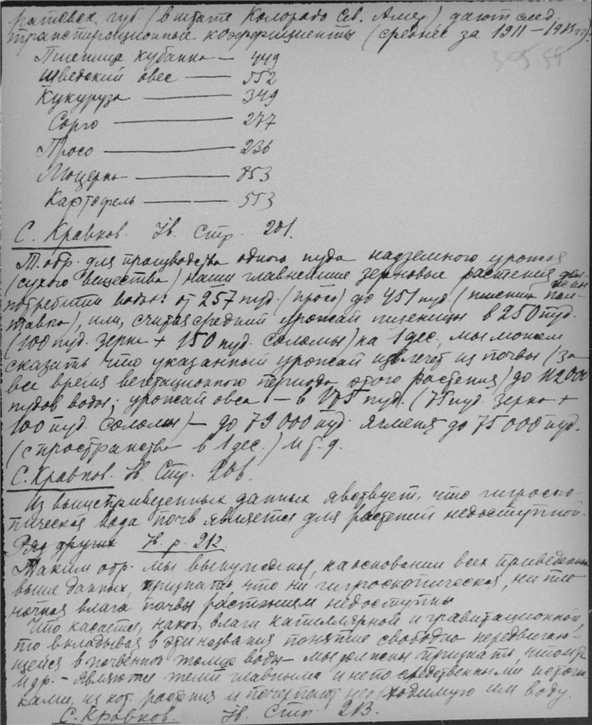 губ (в штате Колорадо Сев. Амер) дают след.
транспирационные коэффициенты (среднее за 1911–1913 гг).
Пшеница кубанка — 449
Шведский овес — 552
Кукуруза — 349
Сорго — 277
Просо — 236
Люцерна — 853
Картофель — 553
С. Кравков. Стр. 201.
Т. обр. для производства одного пуда надземного урожая
(сухого вещества) наши главнейшие зерновые растения
потребили воды: от 257 пуд. (просо) до 451 пуд. (пшеница
), или, считая средний урожай пшеницы в 250 пуд.
(100 пуд. зерна + 150 пуд. соломы) на 1 дес., мы можем
сказать что указанный урожай извлечет из почвы (за
все время вегетационного периода этого растения) до 112000
пудов воды; урожай овса — в 175 пуд. (75 пуд зерна +
100 пуд. соломы) — до 79000 пуд. ячменя до 75000 пуд.
(с пространства в 1 дес.) и т. д.
С. Кравков. Стр. 206.
Из вышеприведенных данных явствует, что гигроско-
пическая вода почв является для растений недоступной.
Ряд других р. 212
Таким обр. мы вынуждены, на основании всех приведенных
выше данных, признать что ни гигроскопическая, ни пле
ночная влага почвы растениям недоступны
Что касается, након, влаги капиллярной и гравитационной,
то вкладывая в эти названия понятие свободно передвигаю-
щейся в почвенной толще воды — мы должны признать, что и
— являются теми главными и непосредственными источни
ками, из кот. растения и почерпают необходимую им воду.
С. Кравков. Стр. 213.